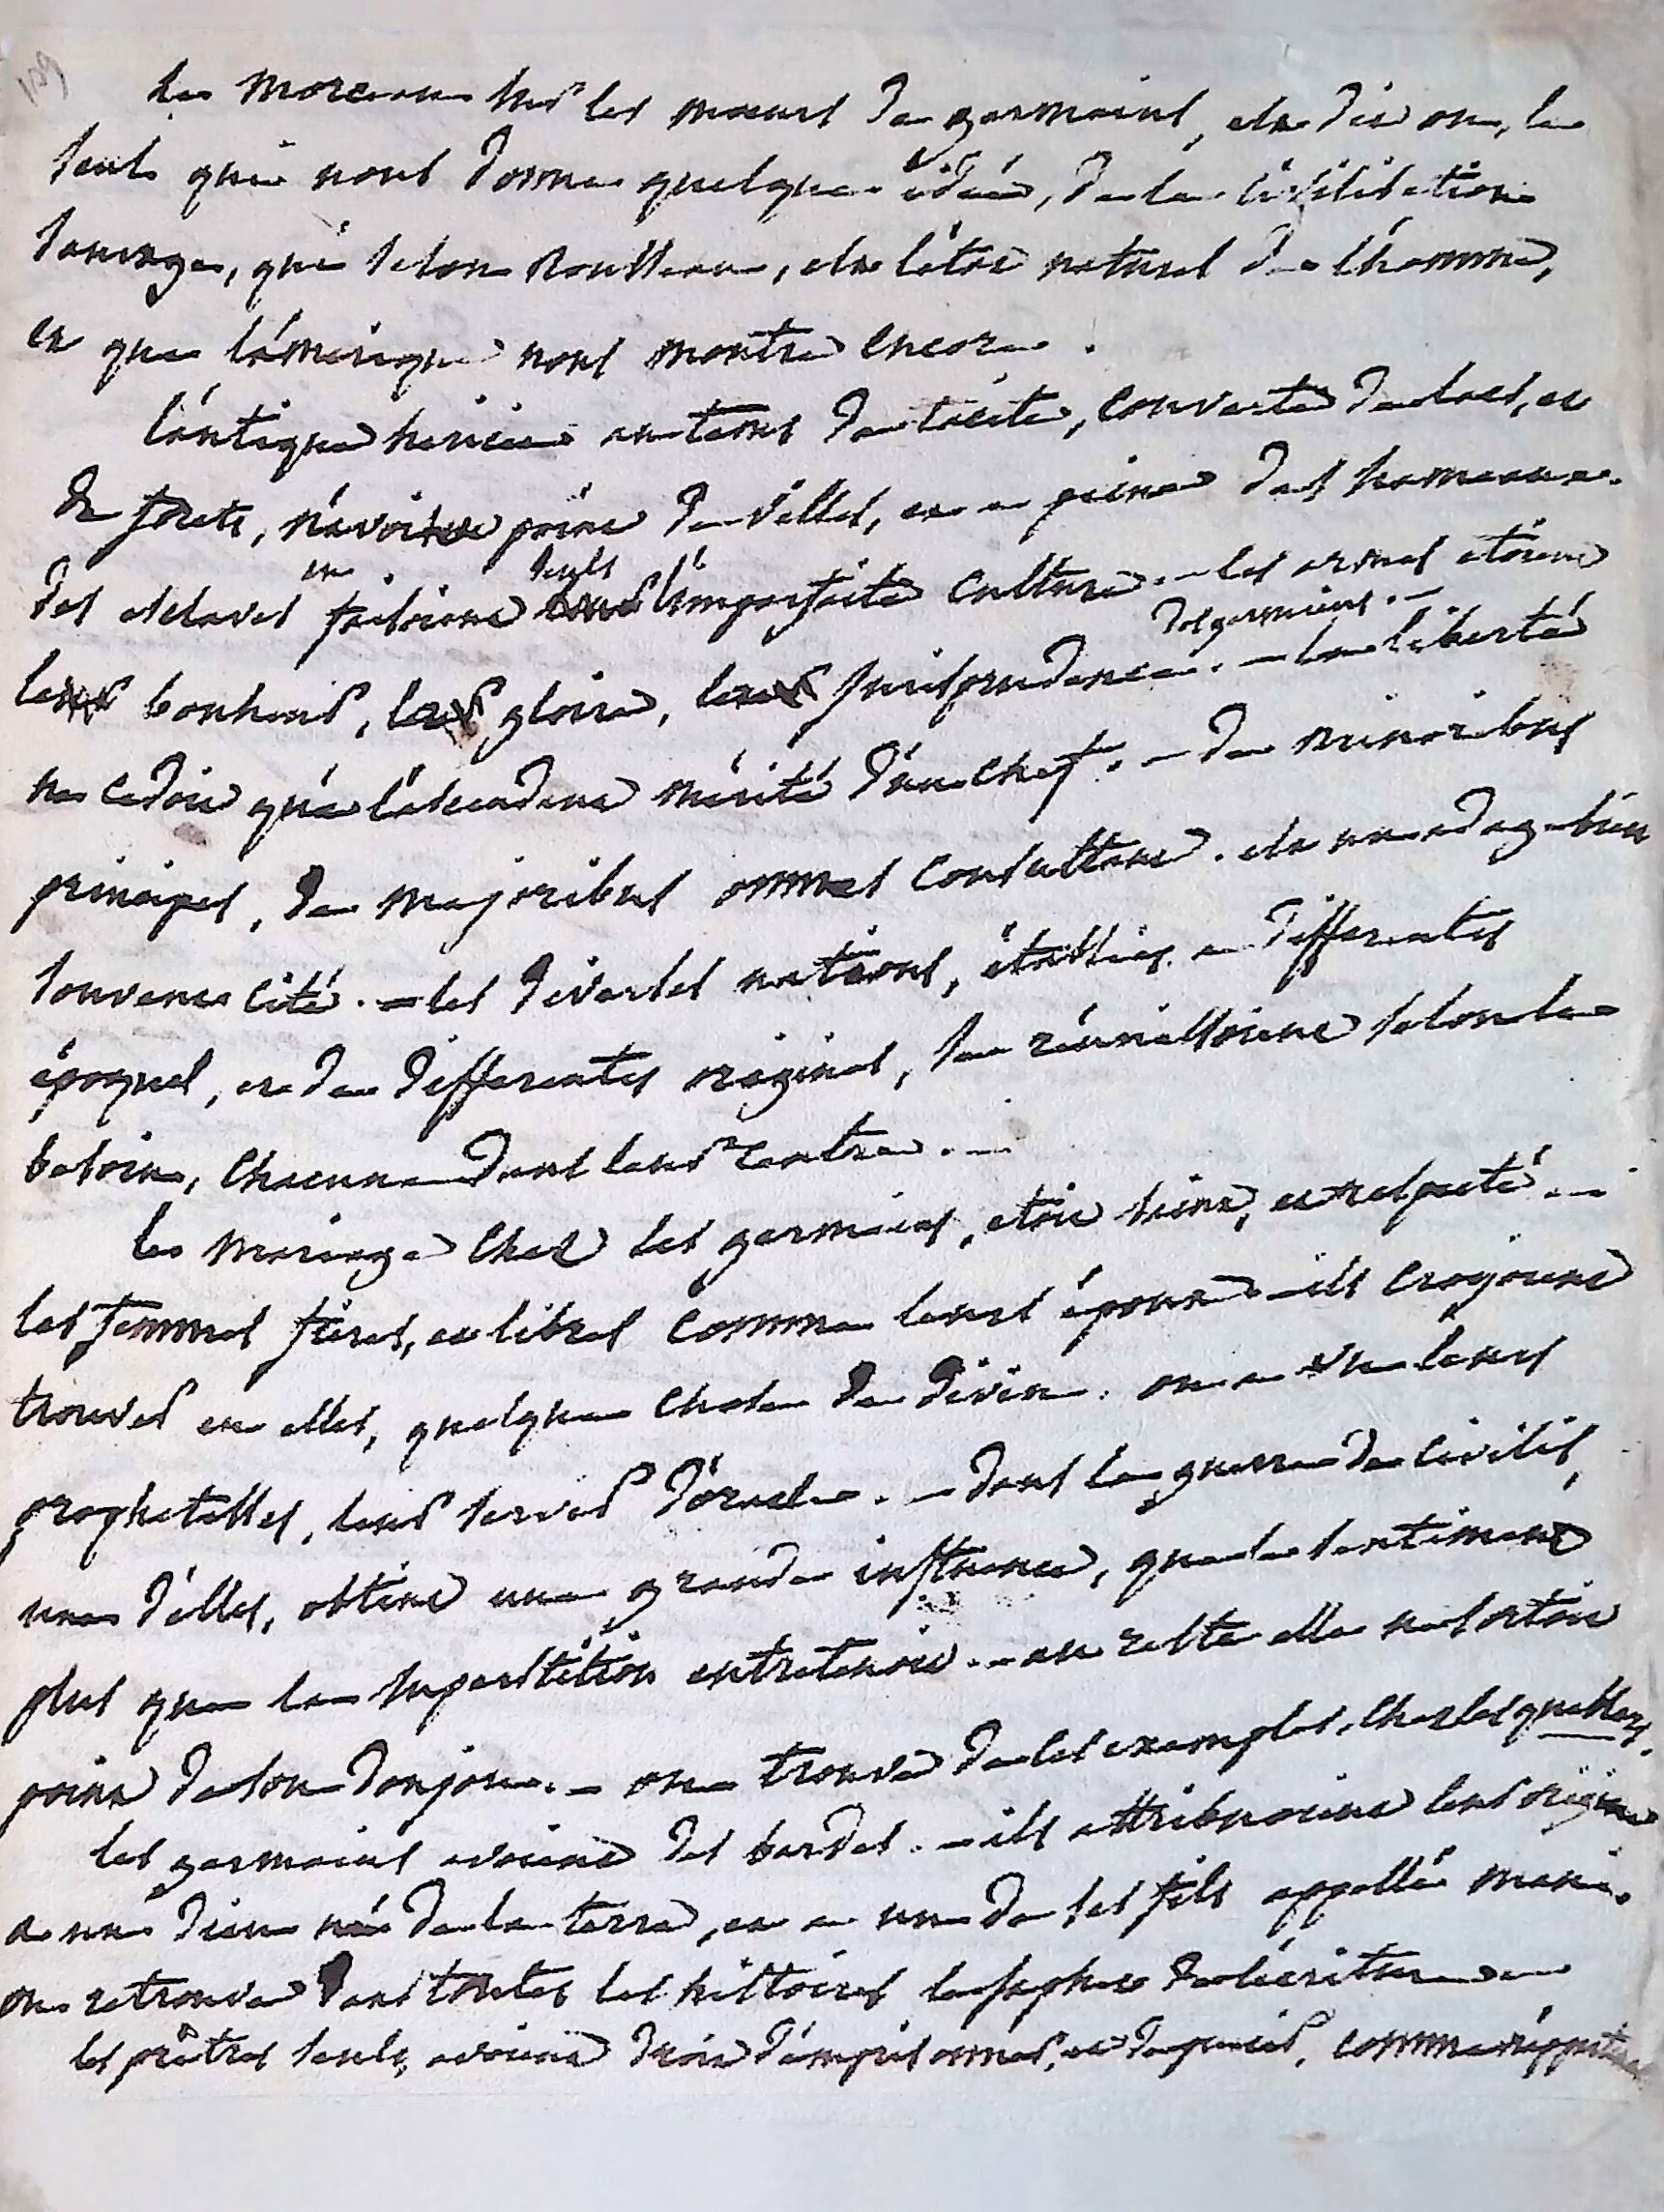 le morceau sur les mœurs des germains, est dit on, le
seul qui nous donne quelque idée, de la civilisation
sauvage, qui selon Rousseau, est l'état naturel de l'homme,
et que l'amérique nous montre encore.
l'antique suisse au tems de tacite, couverte de lacs, et
de forets, n'avoit point de villes, et a peine des hameaux.
des esclaves en faisoient seuls l'imparfaite culture. — les armes etoient
le bonheur, la gloire, la jurisprudence des germains. — la liberté
ne cedoit qu'a l'ascendant mérité d'un chef. — de minoribus
principes, de majoribus omnes consultant. est un adage bien
souvent cité. — les diverses nations, établies a differentes
époques, et de differentes origines, se réunissoient selon le
besoin, chacune dans leur centre. —
le mariage chez les germains, etoit saint, et respecté. —
les femmes fieres, et libres comme leurs époux. — ils croyoient
trouver en elles, quelque chose de divin. on a vu leurs
prophetesses, leur servir d'oracle. — dans la guerre de civilis,
une d'elles, obtint une grande influence, que le sentiment
plus que la superstition entretenoit. — au reste elle ne sortoit
point de son donjon. — on trouve de les exemples, chez les guebres.
les germains avoient des bardes. — ils attribuoient leur origine
a un dieu né de la terre, et a un de ses fils appellé mani.
on retrouve dans toutes les histoires le japhet de l'écriture
les prêtres seuls, avoient droit d'emprisonner, et de punir, comme